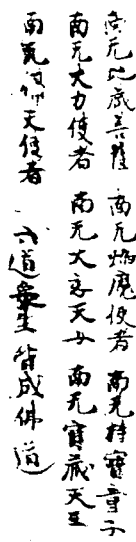 南无地藏菩薩 南无焰魔使者 南无持寶童子
南无大力使者 南无大慈天女 南无寶藏天王
南无攝天使者 六道衆生皆成佛道